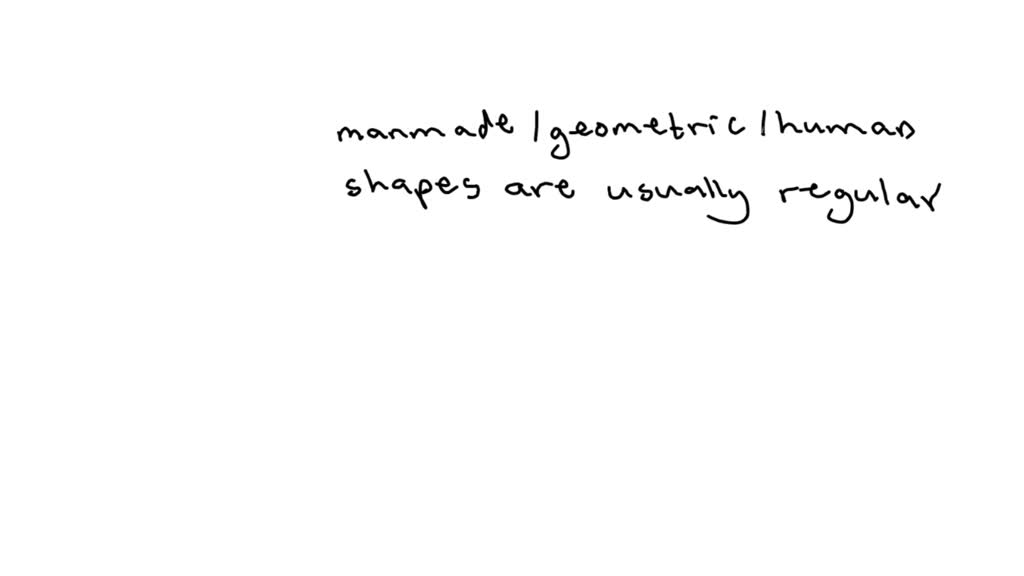 manmade / geometric / human
shapes are usually regular